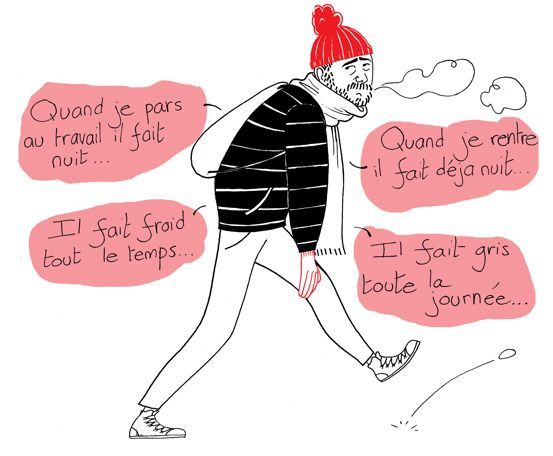 Quand je pars
au travail il fait
nuit...
Quand je rentre
il fait déja nuit...
Il fait froid
tout le temps...
Il fait gris
toute la
journée...